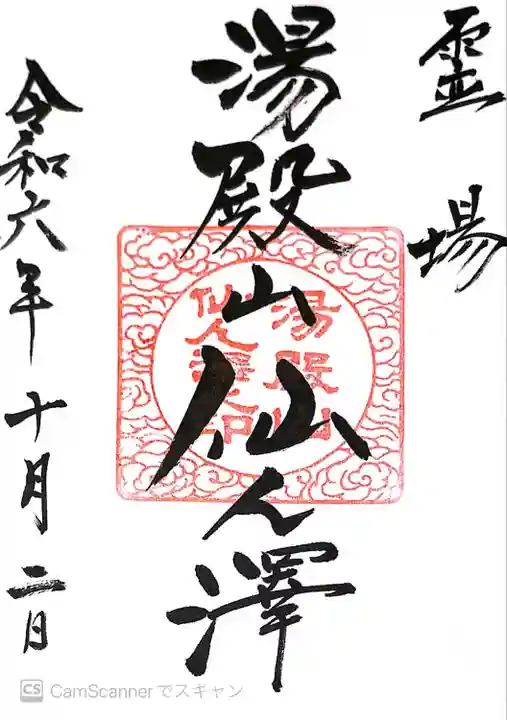 霊場
湯殿山仙人澤
湯殿山
仙人澤之印
令和六年十月二日
CS CamScannerでスキャン